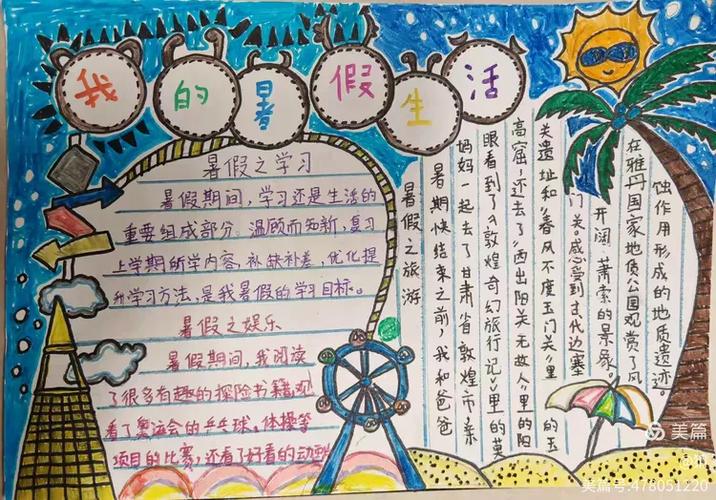 我的暑假生活
暑假之学习
暑假期间，学习还是生活的
重要组成部分。温顾而知新，复习
上学期所学内容，补缺补差，优化提
升学习方法，是我暑假的学习目标。
暑假之娱乐
暑假期间，我阅读
了很多有趣的探险书籍，观
看了奥运会的乒乓球、体操等
项目的比赛，还看了好看的动画
暑假之旅游
暑期快结束之前，我和爸爸
妈妈一起去了甘肃省敦煌市，亲
眼看到了《敦煌奇幻旅行记》里的莫
高窟，还去了“西出阳关无故人”里的阳
关遗址和“春风不度玉门关”里的玉
门关。感受到古代边塞
开阔、萧索的景象。
在雅丹国家地质公园观赏了风
蚀作用形成的地质遗迹。
美篇
美篇号:478051220